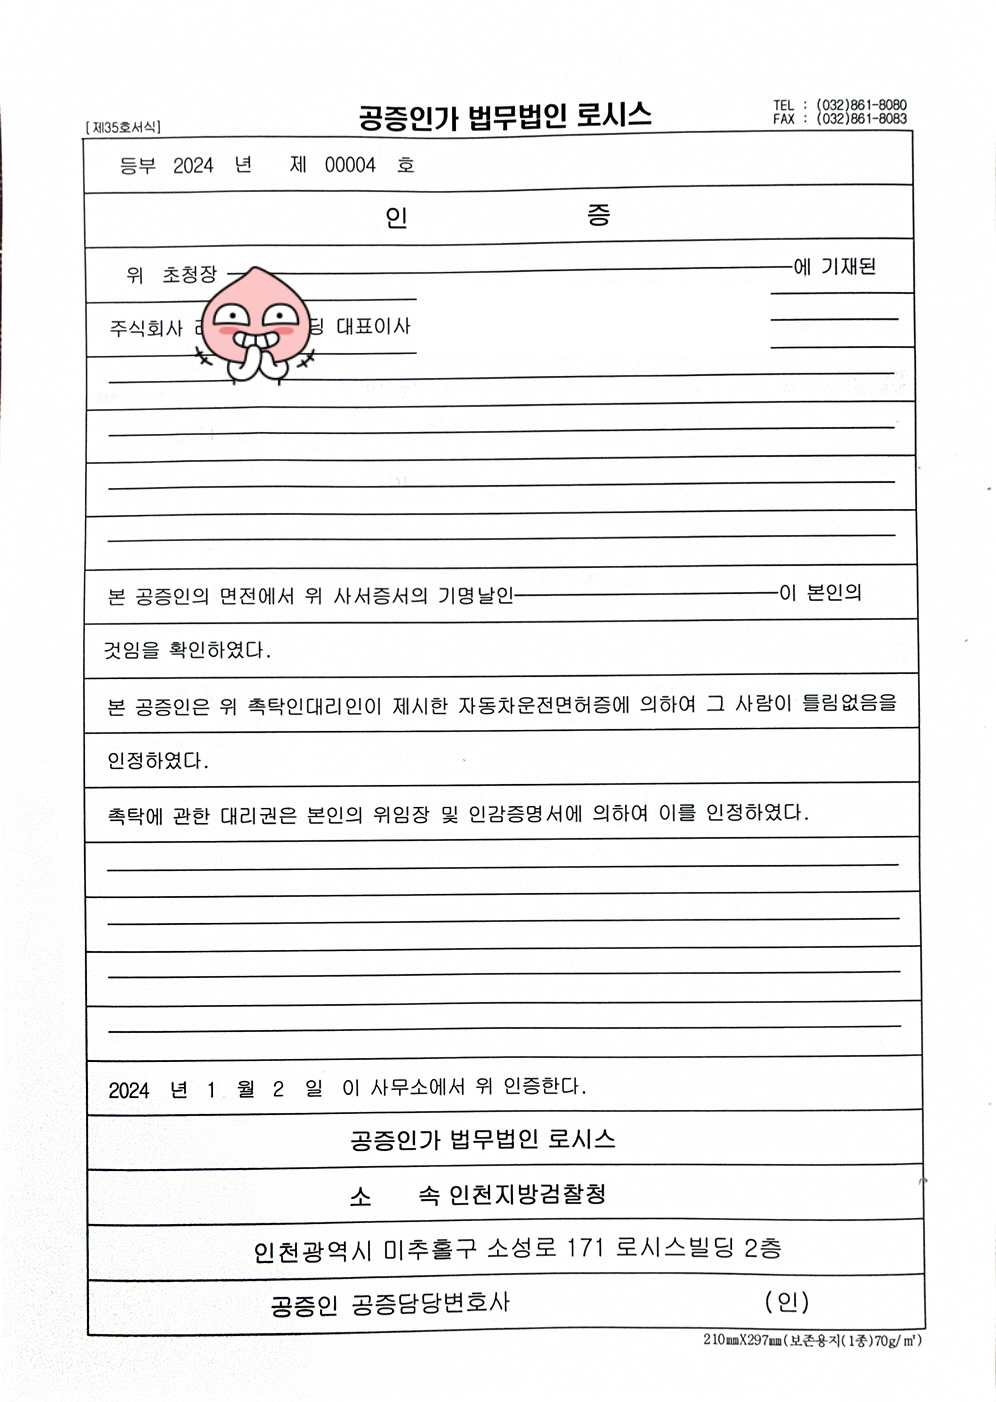 [제35호서식]
공증인가 법무법인 로시스
TEL : (032)861-8080
FAX : (032)861-8083
등부 2024 년 제 00004 호
인 증
위 초청장 에 기재된
주식회사 딩 대표이사
본 공증인의 면전에서 위 사서증서의 기명날인 이 본인의
것임을 확인하였다.
본 공증인은 위 촉탁인대리인이 제시한 자동차운전면허증에 의하여 그 사람이 틀림없음을
인정하였다.
촉탁에 관한 대리권은 본인의 위임장 및 인감증명서에 의하여 이를 인정하였다.
2024 년 1 월 2 일 이 사무소에서 위 인증한다.
공증인가 법무법인 로시스
소 속 인천지방검찰청
인천광역시 미추홀구 소성로 171 로시스빌딩 2층
공증인 공증담당변호사 (인)
210㎜X297㎜(보존용지(1종)70g/㎡)